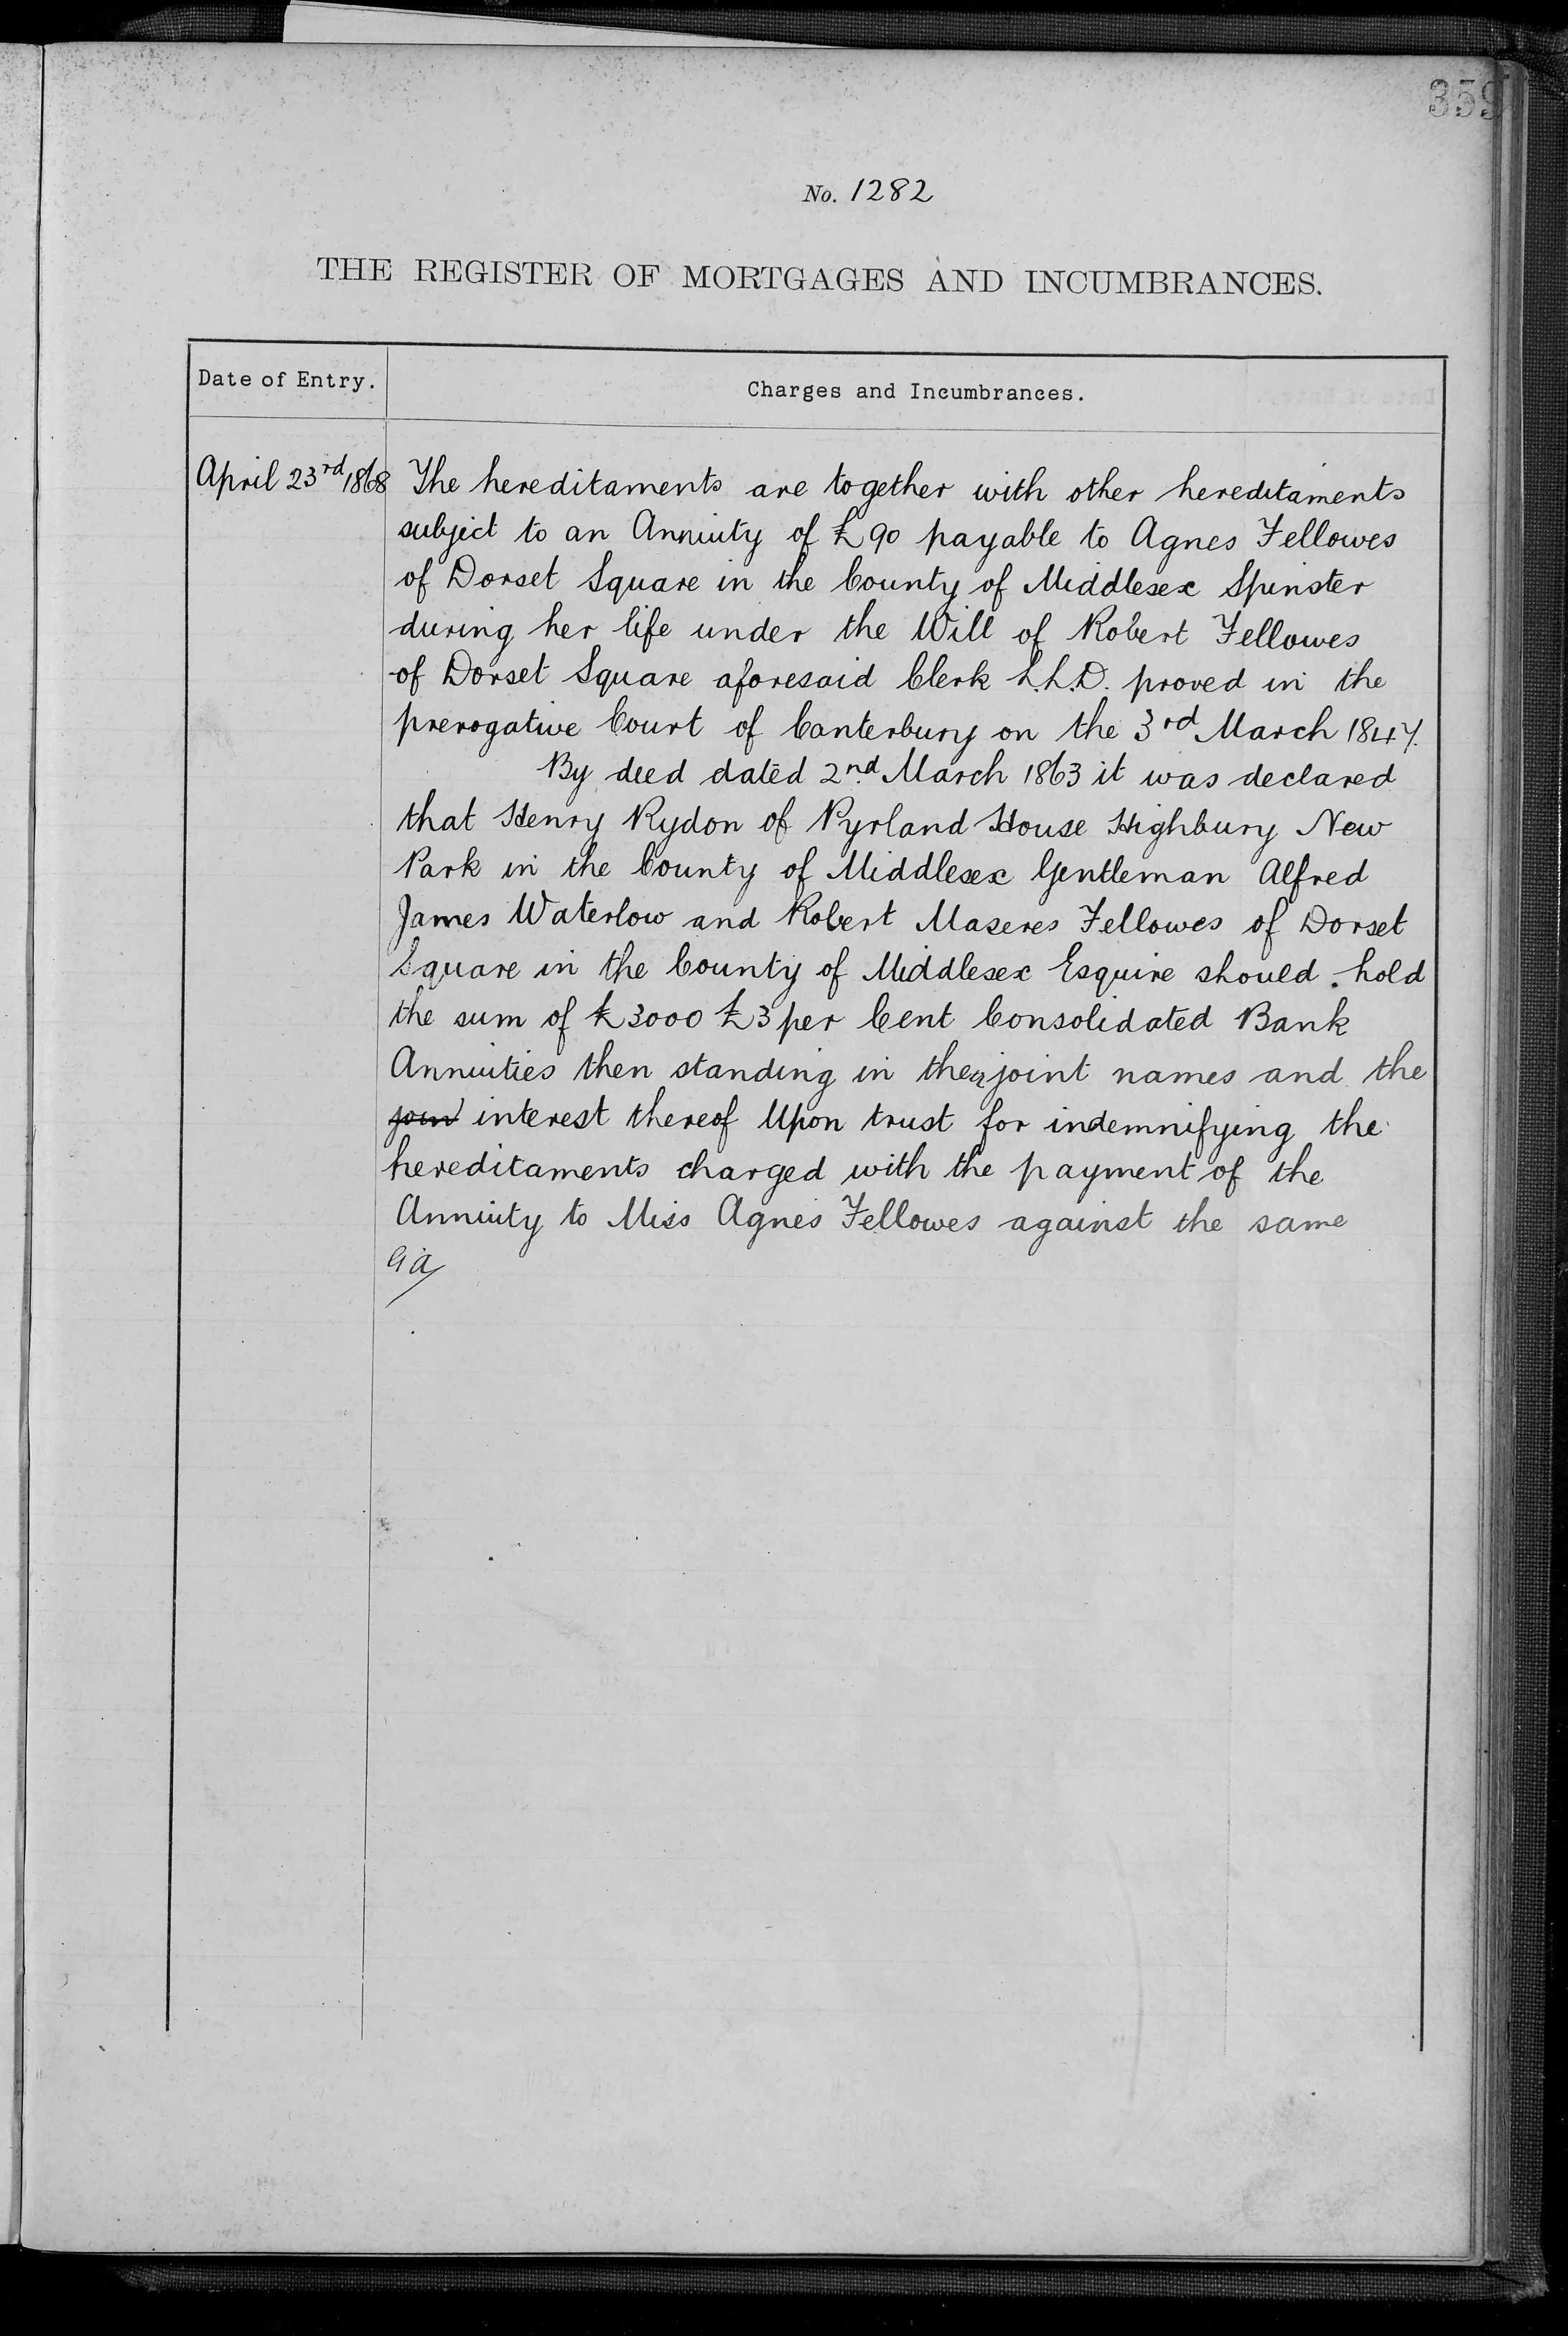 359
No. 1282
THE REGISTER OF MORTGAGES AND INCUMBRANCES.
Date of Entry.
Charges and Incumbrances.
April 23rd 1868
The hereditaments are together with other hereditaments
subject to an Annuity of £90 payable to Agnes Fellowes
of Dorset Square in the County of Middlesex Spinster
during her life under the Will of Robert Fellowes
of Dorset Square aforesaid Clerk L.L.D. proved in the
prerogative Court of Canterbury on the 3rd March 1847.
By deed dated 2nd March 1863 it was declared
that Henry Rydon of Pyrland House Highbury New
Park in the County of Middlesex Gentleman Alfred
James Waterlow and Robert Maseres Fellowes of Dorset
Square in the County of Middlesex Esquire should hold
the sum of £3000 £3 per Cent Consolidated Bank
Annuities then standing in their joint names and the
join interest thereof Upon trust for indemnifying the
hereditaments charged with the payment of the
Annuity to Miss Agnes Fellowes against the same